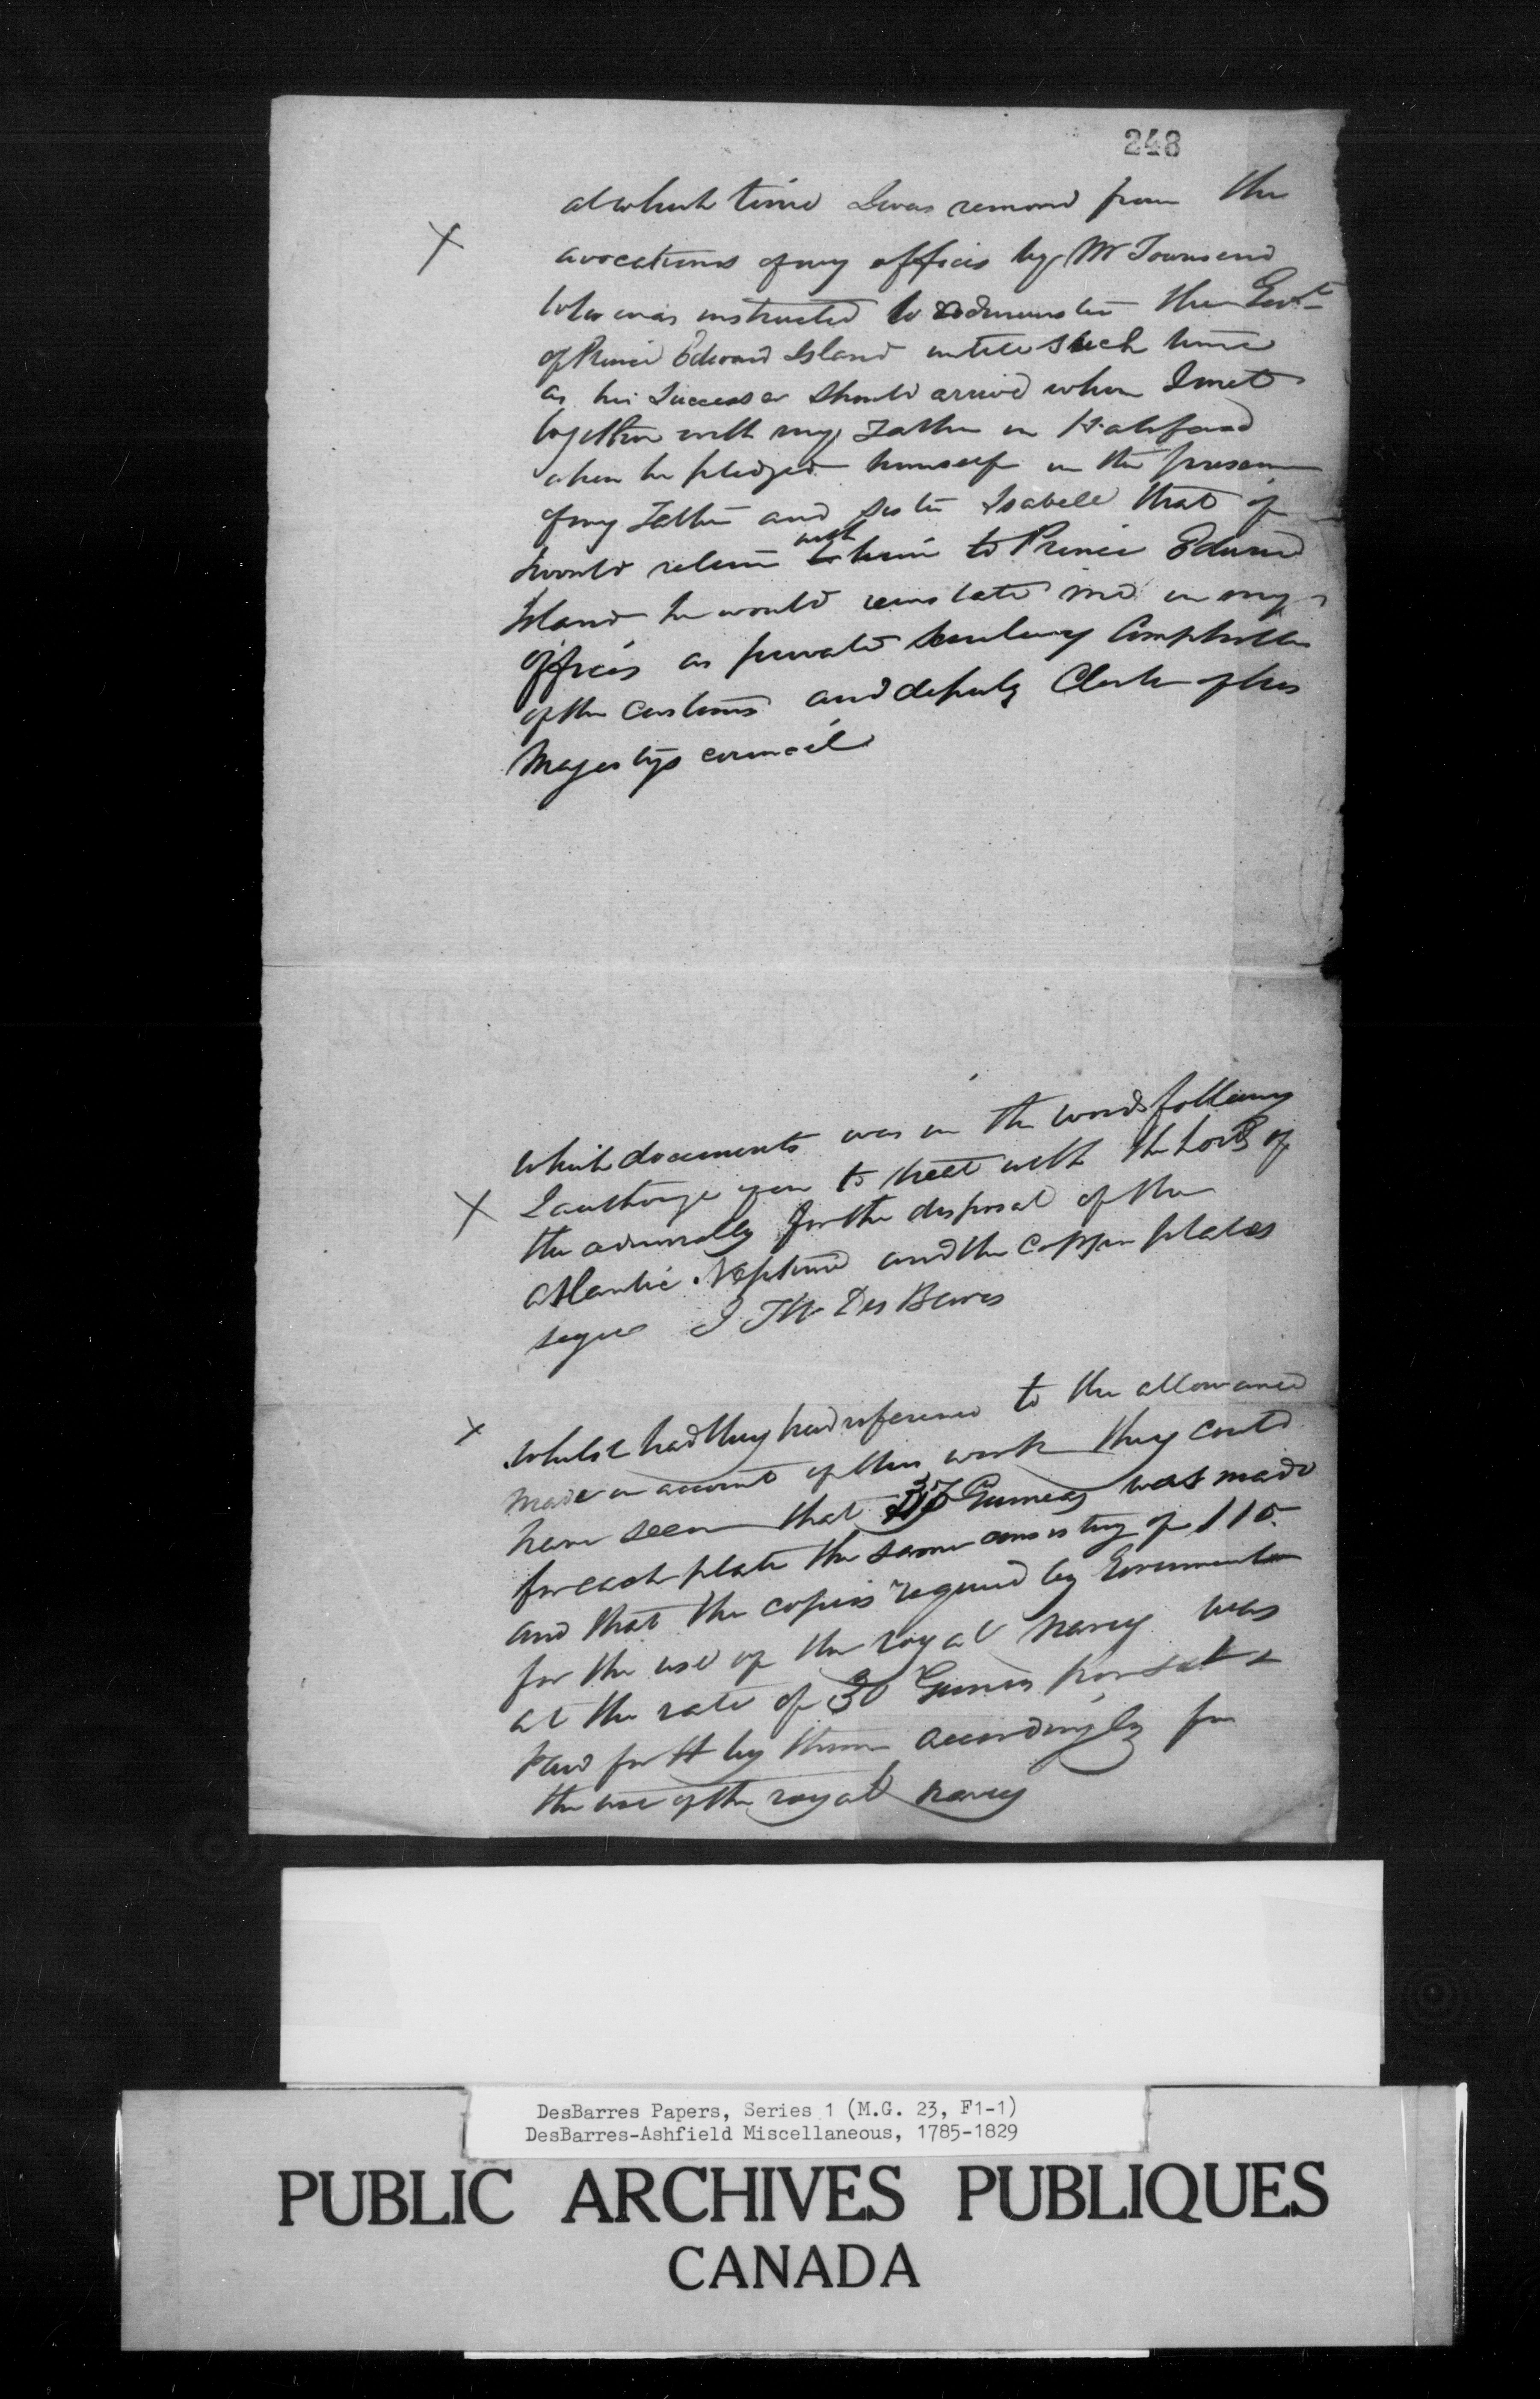 248
at which time I was removed from the
X avocations of my offices by Mr Townsend
who was instructed to administer the Govt
of Prince Edward Island untill such time
as his Successor should arrive whom I met
together with my Father in Halifax
when he pledged himself in the presence
of my Father and Sister Isabell that if
I would return with him to Prince Edward
Island he would reinstate me in my
offices as private Secretary Comptroller
of the Customs and deputy Clerk of his
Majestys council
which documents was in the words following
X I authorize you to treat with the Lords of
the admiralty for the disposal of the
Atlantic Neptune and the Copper plates
signed J F W Des Barres
X whilst had they had reference to the allowance
made on account of this work they could
have seen that Guineas was made
for each plate the same consisting of 110
and that the copies required by Government
for the use of the royal navy was
at the rate of 30 Guineas per set &
paid for it by them accordingly for
the use of the royal navy
DesBarres Papers, Series 1 (M.G. 23, F1-1)
DesBarres-Ashfield Miscellaneous, 1785-1829
PUBLIC ARCHIVES PUBLIQUES
CANADA